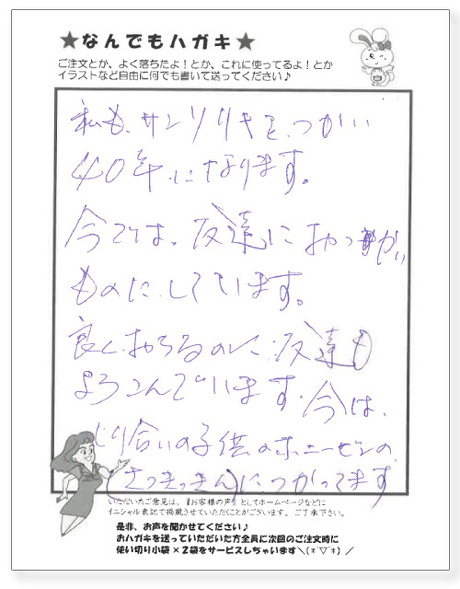 ★なんでもハガキ★
ご注文とか、よく落ちたよ！とか、これに使ってるよ！とか
イラストなど自由に何でも書いて送ってください♪
私も、サンリリキを、つかい
40年になります。
今では、友達におつかい
ものに、しています。
良くおちるのに、友達も
よろこんでいます。今は、
しり合いの子供の
につかってます
いただいたご意見は、『お客様の声』としてホームページなどに
イニシャル表記で掲載させていただくことがございます。ご了承下さい。
是非、お声を聞かせてください♪
おハガキを送っていただいた方全員に次回のご注文時に
使い切り小袋×2袋をサービスしちゃいます＼(*ˊ▽ˋ*)／